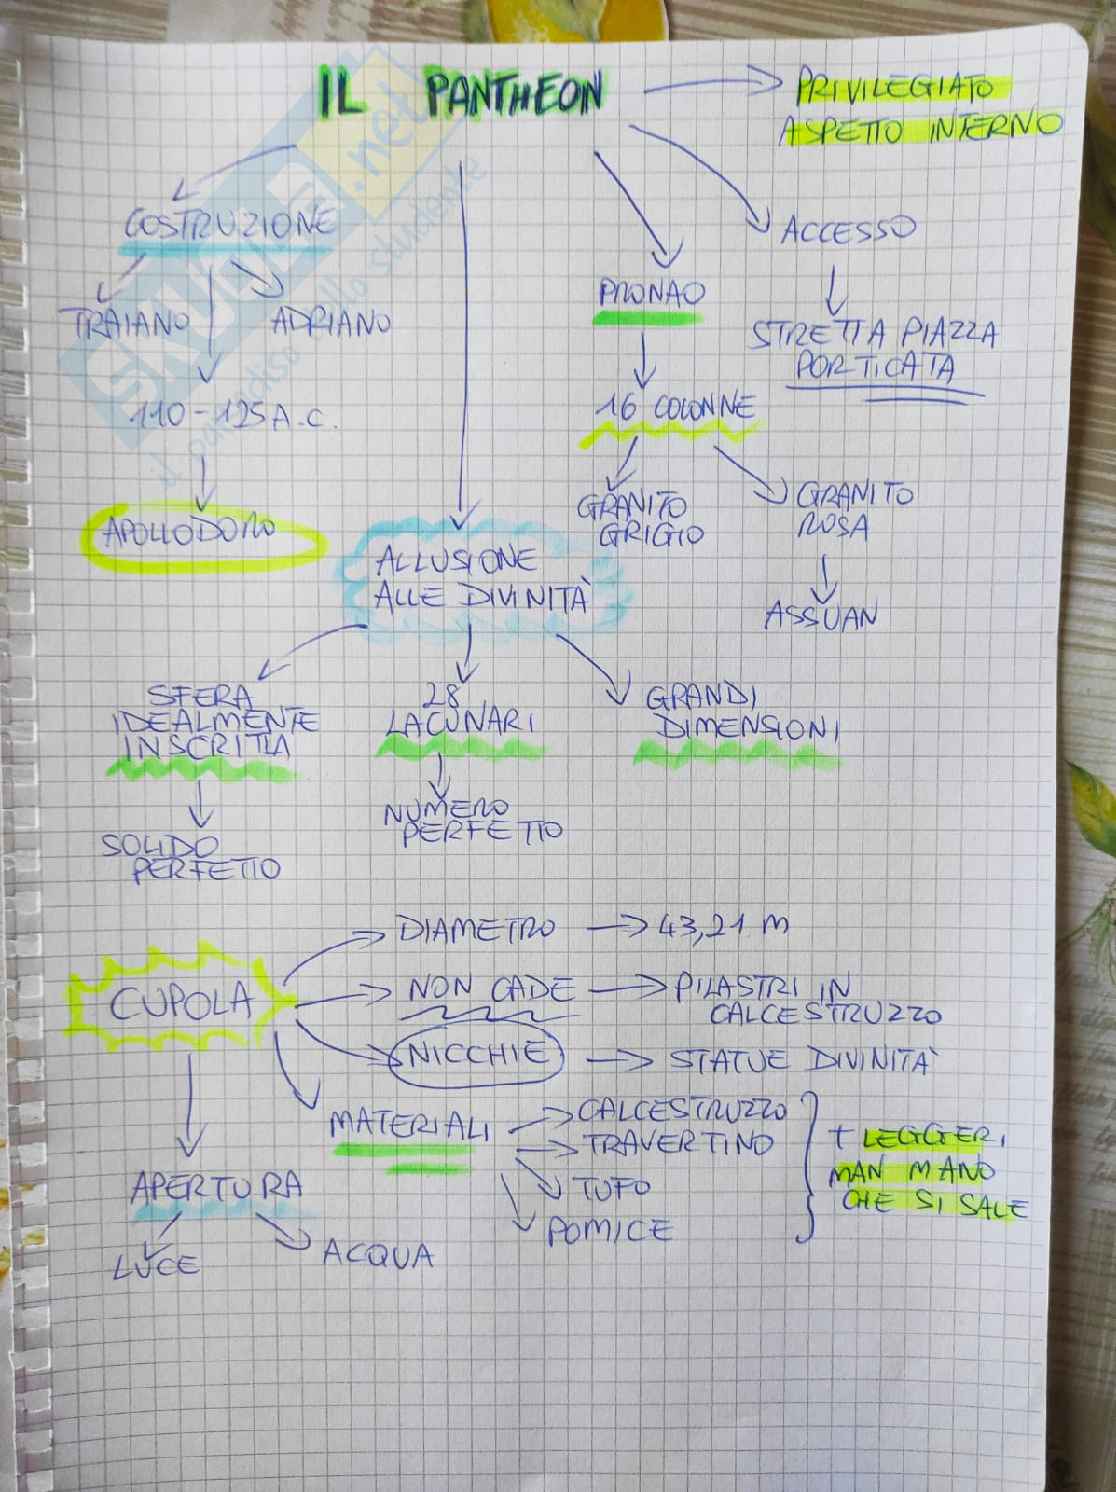 IL PANTHEON
PRIVILEGIATO
ASPETTO INTERNO
COSTRUZIONE
TRAIANO
ADRIANO
110-125 A.C.
APOLLODORO
ALLUSIONE
ALLE DIVINITÀ
PRONAO
16 COLONNE
GRANITO
GRIGIO
GRANITO
ROSA
ASSUAN
ACCESSO
STRETTA PIAZZA
PORTICATA
SFERA
IDEALMENTE
INSCRITTA
SOLIDO
PERFETTO
28
LACUNARI
NUMERO
PERFETTO
GRANDI
DIMENSIONI
CUPOLA
DIAMETRO
43,21 M
NON CADE
PILASTRI IN
CALCESTRUZZO
NICCHIE
STATUE DIVINITÀ
MATERIALI
CALCESTRUZZO
TRAVERTINO
TUFO
POMICE
+ LEGGERI
MAN MANO
CHE SI SALE
APERTURA
LUCE
ACQUA
skuola.net
il paradiso dello studente